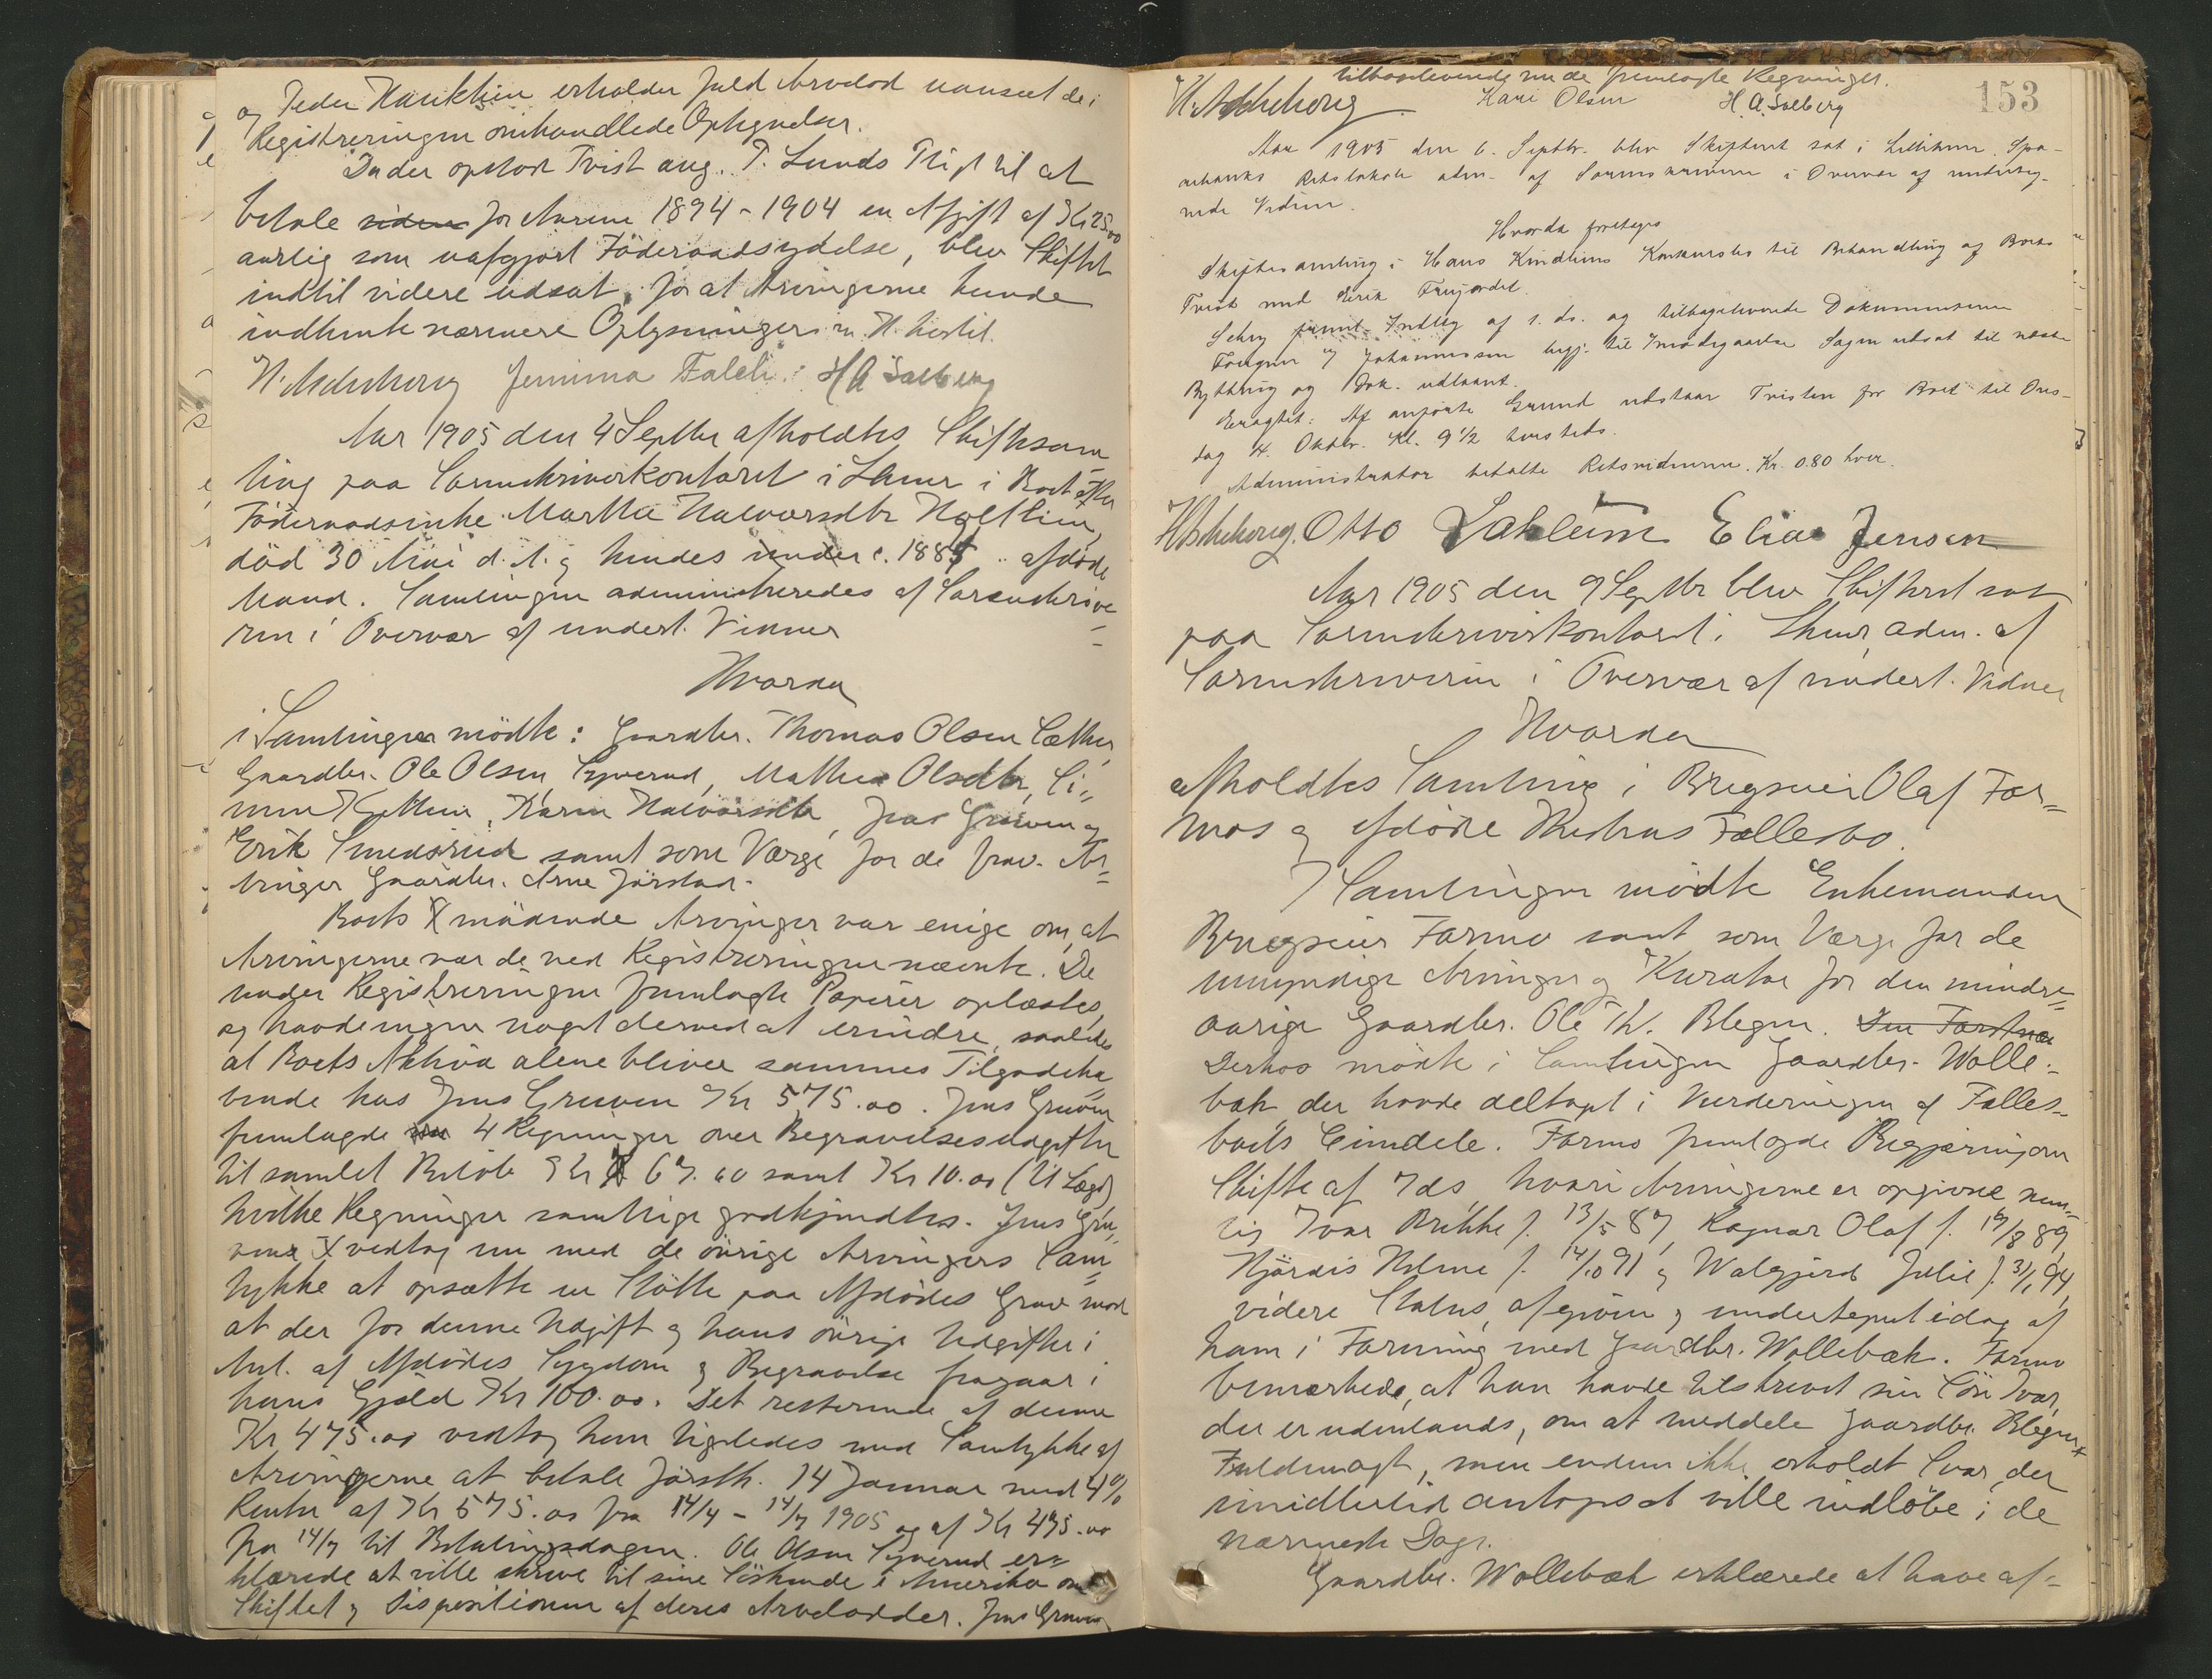 og Peder Haukliin erholder fuld Arvelod uanseet de i
Registreringen omhandlede Optegnelser.
Da der opstod Tvist ang. P. Lunds Pligt til at
betale siden for Aarene 1894-1904 en Afgift af Kr 25.00
aarlig som uafgjort Föderaadsydelse, blev Skiftet
indtil videre udsat for at Arvingerne kunde
indhente nærmere Oplysninger m. H. hertil.
H. Aschehoug Jemima Falck H A Solberg
Aar 1905 den 4 Septbr afholdtes Skiftesam
ling paa Sorenskriverkontoret i Lhmr i Boet efter
Föderaadsenke Martha Halvorsdtr
död 30 Mai d. A. og hendes under 1885 afdöde
Mand. Samlingen administreredes af Sorenskrive
ren i Overvær af undert. Vidner
Hvorda
i Samlingen mödte: Gaardbr. Thomas Olsen Sæther,
Gaardbr. Ole Olsen Syverud, Mathea Olsdtr, Si-
men Karen Halvorsdtr, Jens Gruven og
Erik Smedsrud samt som Værge for de frav. Ar-
vinger Gaardbr. Arne Jörstad.
Boets mödende Arvinger var enige om at
Arvingerne var de ved Registreringen nævnte. De
under Registreringen fremlagte Papirer oplæstes,
og havde ingen noget derved at erindre, saaledes
at Boets Aktiva alene bliver sammes Tilgodeha
vende hos Jens Gruven Kr 575.00. Jens Gruven
fremlagde 4 Regninger over Begravelsesudgifter
til samlet Belöb Kr 67.60 samt Kr 10.00 (til Læge)
hvilke Regninger samtlige godkjendtes. Jens Gru-
ven vedtog nu med de övrige Arvingers Sam-
tykke at opsætte en Stötte paa Afdödes Grav mod
at der for denne Udgift og hans övrige Udgifter i
Anl. af Afdödes Sygdom og Begravelse fragaar i
hans Gjæld Kr 100.00. Det resterende af denne
Kr 475.00 vedtog han ligeledes med Samtykke af
Arvingerne at betale förstk. 14 Januar med 4%
Renter af Kr 575.00 fra 14/4 - 14/7 1905 og af Kr 475.00
fra 14/7 til Betalingsdagen. Ole Olsen Syverud er-
klærede at ville skrive til sine Söskende i Amerika om
Skiftet og Dispositionen af deres Arvelodder. Jens Gruven
tilbageleverede nu de fremlagte Regninger.
153
H. Aschehoug. Kari Olsen H. A. Solberg
Aar 1905 den 6. Septbr. blev Skifteret sat i Lillehmr. Spa-
rebanks Retslokale adm. af Sorenskriveren i Overvær af underteg-
nede Vidner.
Hvorda foretoges
Skiftesamling i Hans Kindlins Konkursbo til Behandling af Boets
Tvist med Erik Frujordet.
Selvig fremt. Indlæg af 1. ds. og tilbageleverede Dokumenterne
Fougner og Johannessen begj. til Imödegaaelse Sagen udsat til næste
Bytting og Dok. udlaant.
Eragtet: Af anförte Grund udstaar Tvisten for Boet til Ons-
dag 4. Oktbr. Kl. 9 1/2 hersteds.
Administrator betalte Retsvidnerne Kr. 0.80 hver.
H. Aschehoug. Otto Dahleim Elias Jensen
Aar 1905 den 9 Septbr blev Skifteret sat
paa Sorenskriverkontoret i Lhmr, adm. af
Sorenskriveren i Overvær af undert. Vidner
Hvorda
afholdtes Samling i Brugseier Olaf For-
mos og afdöde Fællesbo.
I Samlingen mödte Enkemanden
Brugseier Formo samt som Værge for de
umyndige Arvinger og Kurator for den mindre-
aarige Gaardbr. Ole Th. Blegen.
Derhos mödte i Samlingen Gaardbr. Wolle-
bæk der havde deltaget i Vurderingen af Fælles-
boets Eiendele. Formo fremlagde Begjæring om
Skifte af 7 ds, hvori Arvingerne er opgivne nem-
lig Ivar Brikke f. 13/5 87, Ragnar Olaf f. 19/8 89,
Hjördis Helene f. 14/10 91 og Walgjerd Julie f. 31/1 94,
videre Status, afgiven og underteguet idag af
ham i Forening med Gaardbr. Wollebæk. Formo
bemærkede, at han havde tilskrevet sin Sön Ivar,
der er udenlands, om at meddele Gaardbr. Blegen
Fuldmagt, men endnu ikke erholdt Svar, der
imidlertid antoges at ville indlöbe i de
nærmeste Dage.
Gaardbr. Wollebæk erklærede at have af-